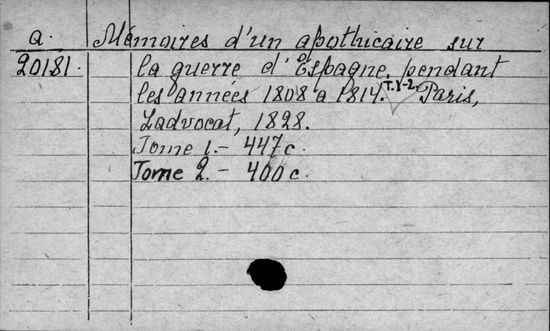 a. Mémoires d'un apothicaire sur
20181. la guerre d'Espagne, pendant
les années 1808 à 1814. T.1-2. Paris,
Ladvocat, 1828.
Tome 1. - 447 c.
Tome 2. - 400 c.